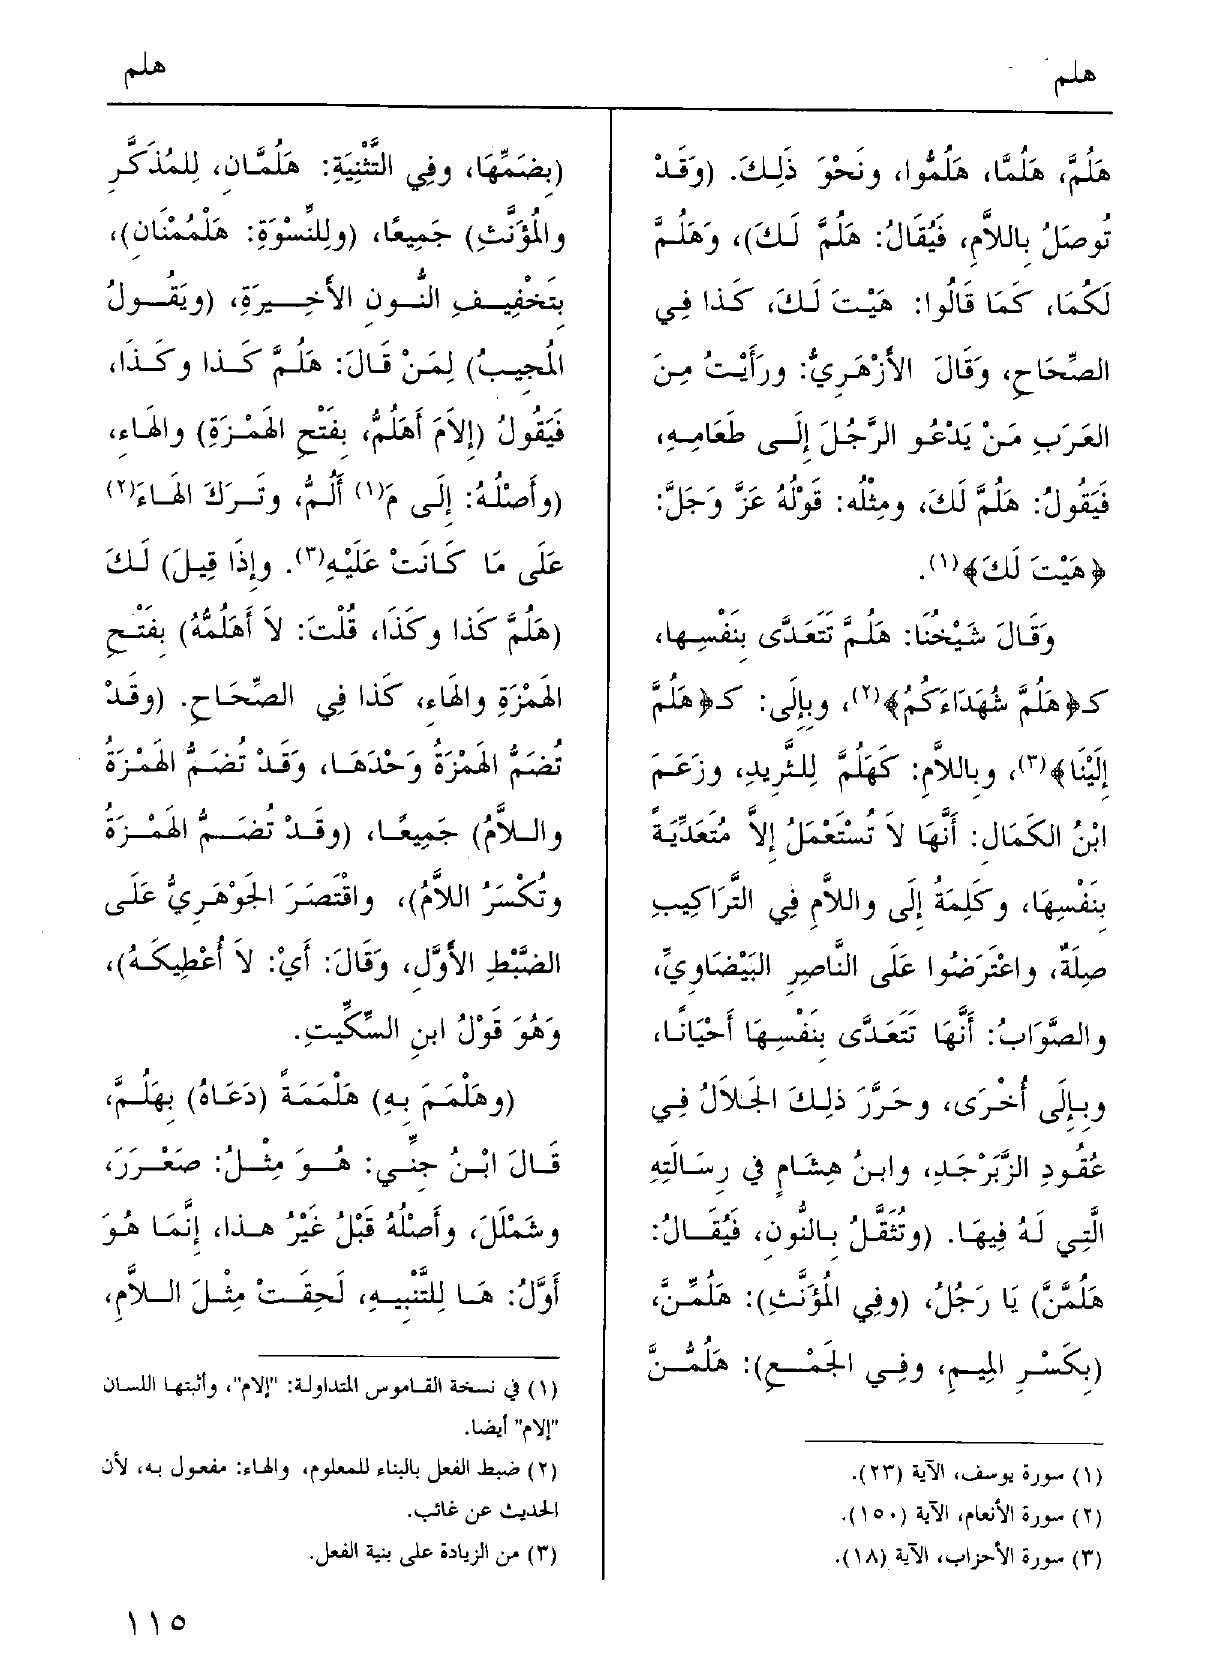 هلم
هلم
هَلُمَّ، هَلُمَّا، هَلُمُّوا، ونَحْوَ ذَلِكَ. (وَقَدْ
تُوصَلُ بِاللاَّمِ، فَيُقَالُ: هَلُمَّ لَكَ)، وَهَلُمَّ
لَكُمَا، كَمَا قَالُوا: هَيْتَ لَكَ، كَذا فِي
الصِّحَاحِ، وَقَالَ الأَزْهَرِيُّ: ورَأَيْتُ مِنَ
العَرَبِ مَنْ يَدْعُو الرَّجُلَ إِلَى طَعَامِهِ،
فَيَقُولُ: هَلُمَّ لَكَ، ومِثْلُه: قَوْلُهُ عَزَّ وَجَلَّ:
﴿هَيْتَ لَكَ﴾(١).
وَقَالَ شَيْخُنَا: هَلُمَّ تَتَعَدَّى بِنَفْسِها،
كـ﴿هَلُمَّ شُهَدَاءَكُمُ﴾(٢)، وبِإِلَى: كـ﴿هَلُمَّ
إِلَيْنَا﴾(٣)، وبِاللاَّمِ: كَهَلُمَّ لِلثَّرِيدِ، وزَعَمَ
ابْنُ الكَمَالِ: أَنَّهَا لاَ تُسْتَعْمَلُ إِلاَّ مُتَعَدِّيَةً
بِنَفْسِهَا، وكَلِمَةُ إِلَى واللاَّمِ فِي التَّرَاكِيبِ
صِلَةٌ، واعْتَرَضُوا عَلَى النَّاصِرِ البَيْضَاوِيِّ،
والصَّوَابُ: أَنَّهَا تَتَعَدَّى بِنَفْسِهَا أَحْيَانًا،
وبِإِلَى أُخْرَى، وحَرَّرَ ذلِكَ الجَلاَلُ فِي
عُقُودِ الزَّبَرْجَدِ، وابنُ هِشَامٍ في رِسَالَتِهِ
الَّتِي لَهُ فِيهَا. (وتُثَقَّلُ بِالنُّونِ، فَيُقَالُ:
هَلُمَّنَّ) يَا رَجُلُ، (وفِي المُؤَنَّثِ): هَلُمِّنَّ،
(بِكَسْرِ المِيمِ، وفِي الجَمْعِ): هَلُمُّنَّ
(١) سورة يوسف، الآية (٢٣).
(٢) سورة الأنعام، الآية (١٥٠).
(٣) سورة الأحزاب، الآية (١٨).
(بِضَمِّهَا، وفِي التَّثْنِيَةِ: هَلُمَّانِ، لِلمُذَكَّرِ
والمُؤَنَّثِ) جَمِيعًا، (ولِلنِّسْوَةِ: هَلْمُمْنَانِ)،
بِتَخْفِيفِ النُّونِ الأَخِيرَةِ، (ويَقُولُ
المُجِيبُ) لِمَنْ قَالَ: هَلُمَّ كَذا وكَذا،
فَيَقُولُ (إِلاَمَ أَهَلُمُّ، بِفَتْحِ الهَمْزَةِ) والهَاءِ،
(وأَصْلُهُ: إِلَى مَ(١) أَلُمُّ، وتَرَكَ الهَاءَ(٢)
عَلَى مَا كَانَتْ عَلَيْهِ(٣). وإِذَا قِيلَ) لَكَ
(هَلُمَّ كَذا وكَذَا، قُلْتَ: لاَ أَهَلُمُّهُ) بِفَتْحِ
الهَمْزَةِ والهَاءِ، كَذا فِي الصِّحَاحِ. (وقَدْ
تُضَمُّ الهَمْزَةُ وَحْدَهَا، وَقَدْ تُضَمُّ الهَمْزَةُ
واللاَّمُ) جَمِيعًا، (وقَدْ تُضَمُّ الهَمْزَةُ
وتُكْسَرُ اللاَّمُ)، واقْتَصَرَ الجَوْهَرِيُّ عَلَى
الضَّبْطِ الأَوَّلِ، وَقَالَ: أَيْ: لاَ أُعْطِيكَهُ)،
وَهُوَ قَوْلُ ابنِ السِّكِّيتِ.
(وهَلْمَمَ بِهِ) هَلْمَمَةً (دَعَاهُ) بِهَلُمَّ،
قَالَ ابْنُ جِنِّي: هُوَ مِثْلُ: صَعْرَرَ،
وشَمْلَلَ، وأَصْلُهُ قَبْلُ غَيْرُ هذا، إِنَّمَا هُوَ
أَوَّلُ: هَا لِلتَّنْبِيهِ، لَحِقَتْ مِثْلَ اللاَّمِ،
(١) في نسخة القاموس المتداولة: "إلام"، وأثبتها اللسان
"إلام" أيضا.
(٢) ضبط الفعل بالبناء للمعلوم، والهاء: مفعول به، لأن
الحديث عن غائب.
(٣) من الزيادة على بنية الفعل.
١١٥